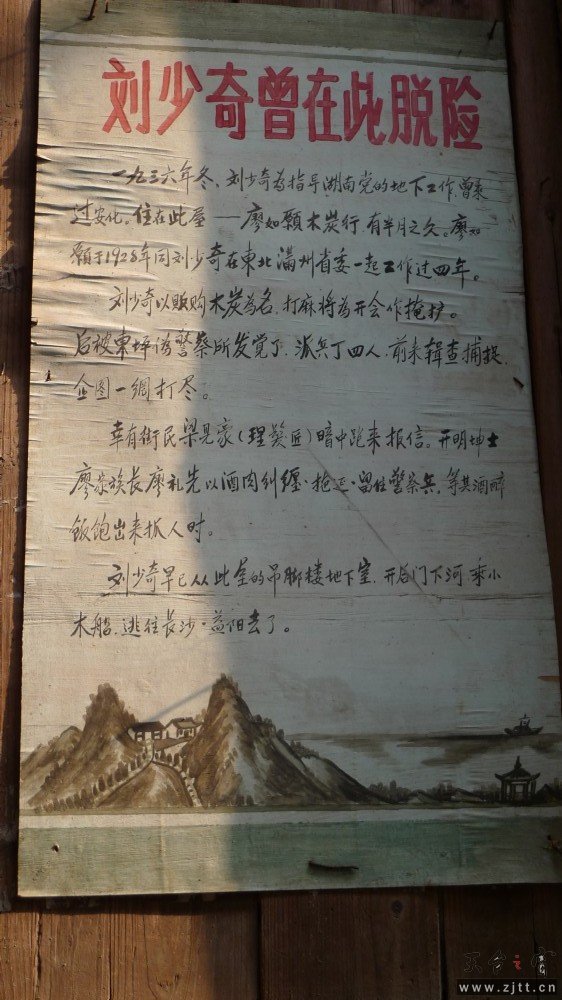 刘少奇曾在此脱险
一九三六年冬、刘少奇为指导湖南党的地下工作,曾来
过安化。住在此屋——廖如願木炭行有半月之久。廖如
願于1928年同刘少奇在東北满州省委一起工作过四年。
刘少奇以贩购木炭為名,打麻将為开会作掩护。
后被東坪伪警察所发觉了,派兵丁四人,前来辑查捕捉,
企图一绸打尽。
幸有街民梁見豪(理髮匠)暗中跑来报信。开明坤士
廖家族长廖礼先以酒肉纠缠·拖延·留住警察兵,等其酒醉
饭饱出来抓人时。
刘少奇早已从此屋的吊脚楼地下室,开后门下河乘小
木船,逃往长沙·益阳去了。
天台之窗
www.zjtt.cn